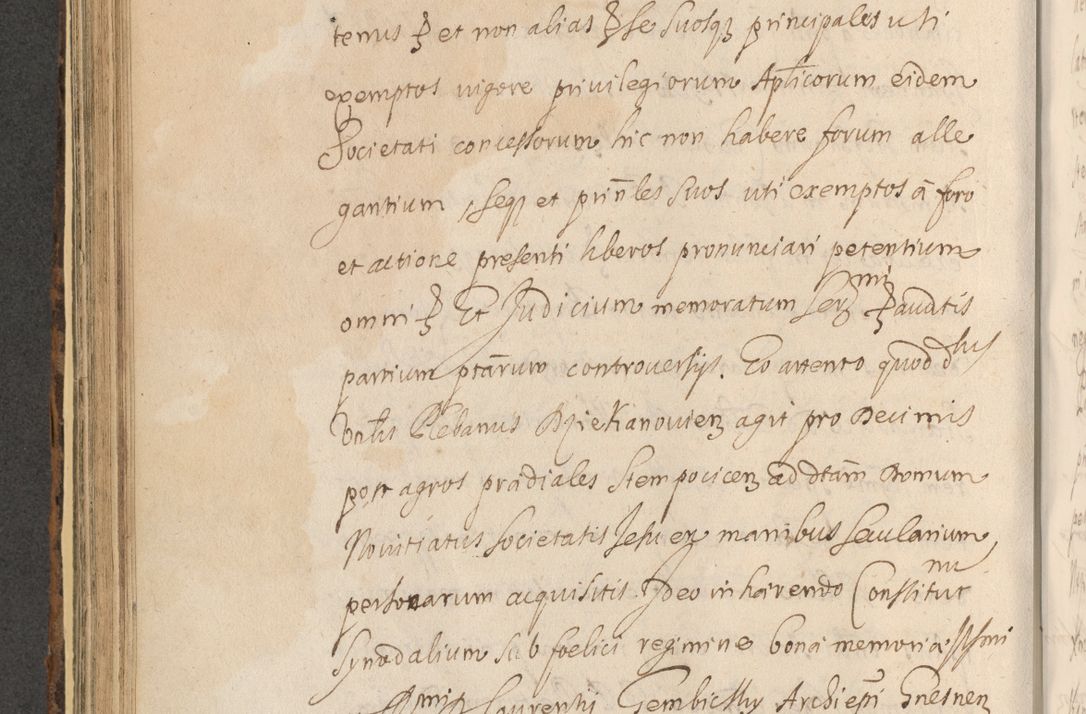 tenus et non alias se suosq principales uti
exemptos vigore privilegiorum Aplicorum eidem
Societati concessorum hic non habere forum alle
gantium, seq et prinles suos uti exemptos a foro
et actione presenti liberos pronunciari petentium
omni Et Judicium memoratum auditis
partium ptarum controversys. Eo attento quod
Vnlis Plebanus Dziekanovien agit pro Decimis
post agros prædiales Stempocicen ad dtam Domum
Novitiatus Societatis Jesu ex manibus secularium
personarum acquisitis Ideo inhærendo Constitutnu
Synodalium sub foelici regimine bonæ memoriæ Illsmi
Laurentij Gembicky Archiepi Gnesnen